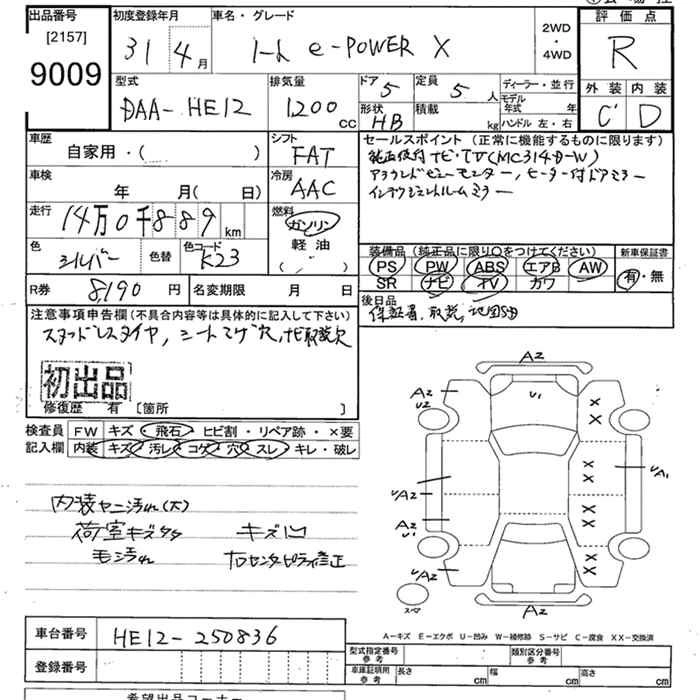 出品番号 初度登録年月 車名・グレード 評価点
[2157]
9009
31年 4月 ノート e-POWER X 2WD・4WD R
型式 排気量 ドア 5 定員 5人 ディーラー・並行 外装 内装
DAA-HE12 1200cc 形状 HB 積載 kg モデル年式 年 C' D
ハンドル 左・右
車歴 シフト セールスポイント(正常に機能するものに限ります)
自家用・( ) FAT 純正後付ナビ・TV(MC314D-W)
車検 冷房 アラウンドビューモニター、ヒーター付ドアミラー
年 月( 日) AAC インテリジェントルームミラー
走行 燃料
14万0千889km ガソリン
色 色替 色コード 軽油 装備品(純正品に限り○をつけてください) 新車保証書
シルバー K23 ( ) PS PW ABS エアB AW 有・無
SR ナビ TV カワ
R券 8,190円 名変期限 月 日 後日品
注意事項申告欄(不具合内容等は具体的に記入して下さい) 保証書、取説、地図SD
スタッドレスタイヤ、シートコゲ穴、ナビ取説欠
初出品
修復歴 有 [箇所 ]
検査員 FW キズ・飛石・ヒビ割・リペア跡・×要
記入欄 内装 キズ・汚レ・コゲ・穴・スレ・キレ・破レ
内装ヤニ汚れ(大)
荷室キズ多々 キズ凹
毛汚れ 右センターピラー修正
A2
A2 U2 U1 XX
XX UA1
UA2 XX
A2 U1 XX
UA2
スペア A2
A-キズ E-エクボ U-凹み W-補修跡 S-サビ C-腐食 XX-交換済
車台番号 HE12-250836 型式指定番号 参考 類別区分番号 参考
登録番号 車庫証明用 参考 長さ cm 幅 cm 高さ cm
希望出品コーナー